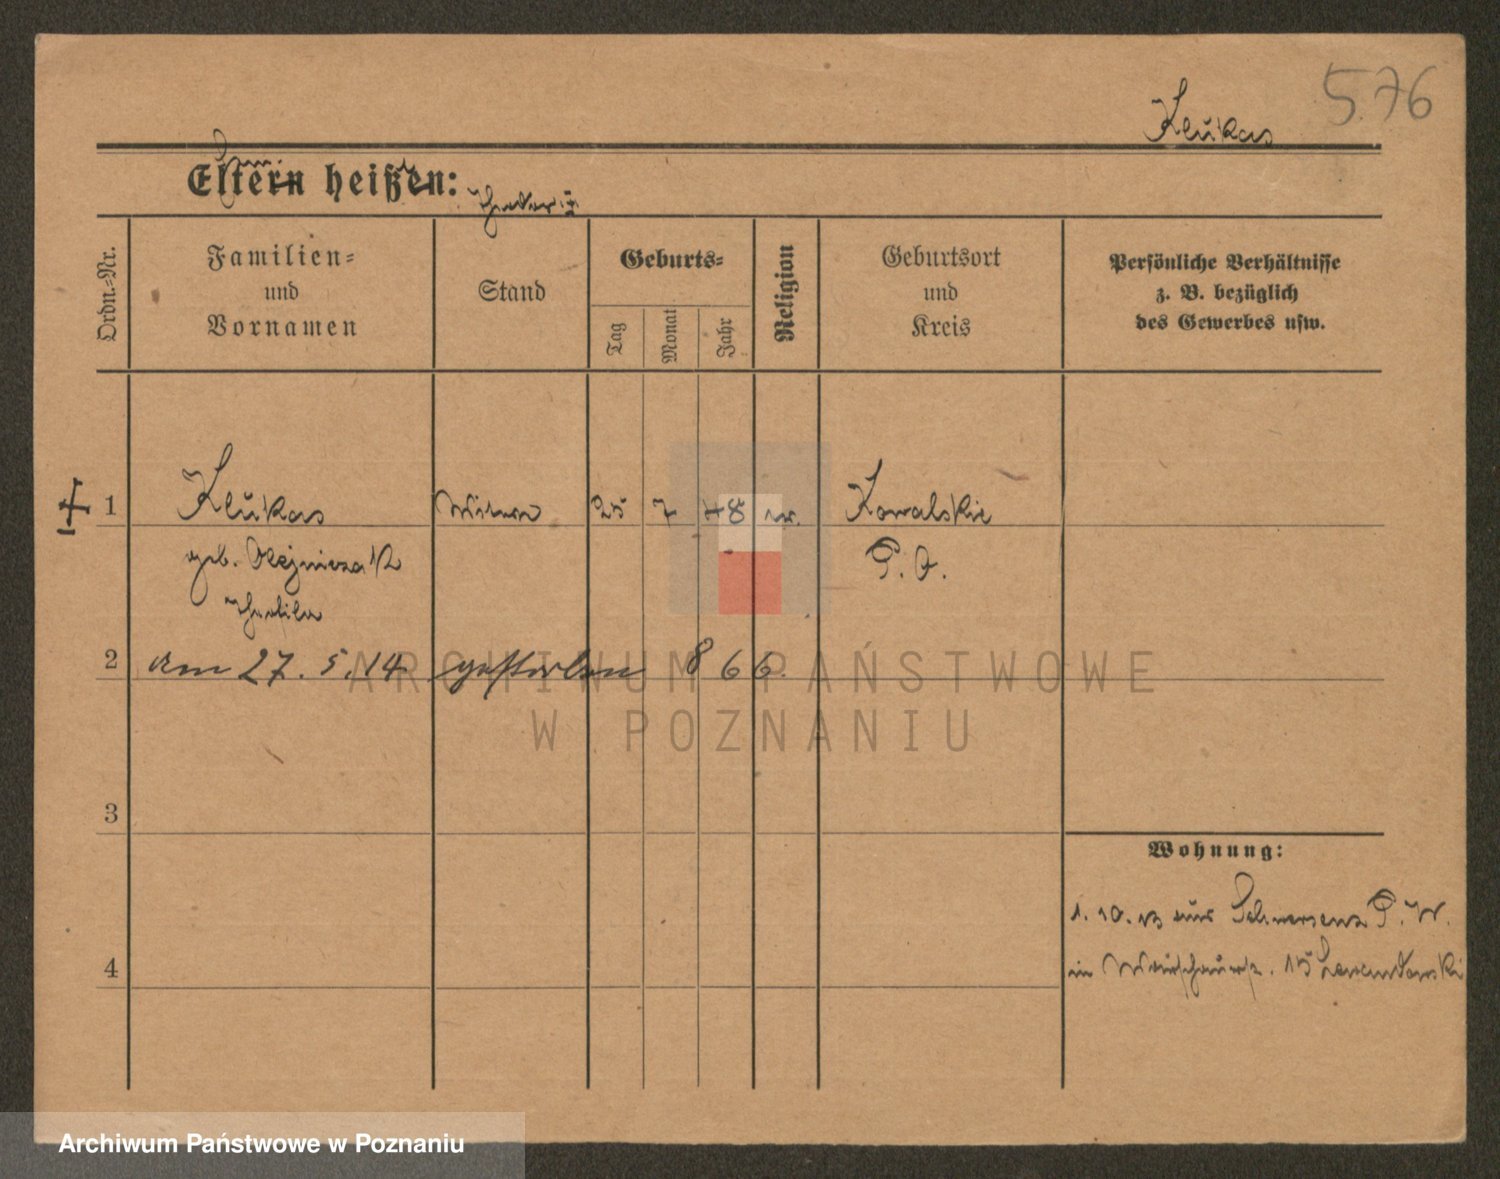 576
Klukas
Eltern heißen:
Ordn.-Nr.
Familien-
und
Vornamen
Stand
Geburts-
Tag
Monat
Jahr
Religion
Geburtsort
und
Kreis
Persönliche Verhältnisse
z. B. bezüglich
des Gewerbes usw.
1 Klukas Witwe 25 7 48 Kowalskie
geb. Olejniczak P. O.
Theofila
2 am 27. 5. 14 gestorben 866.
ARCHIWUM PAŃSTWOWE
W POZNANIU
3
Wohnung:
1. 10. 13 aus Schwersenz P. W.
4
in 15 Lewandowski
Archiwum Państwowe w Poznaniu